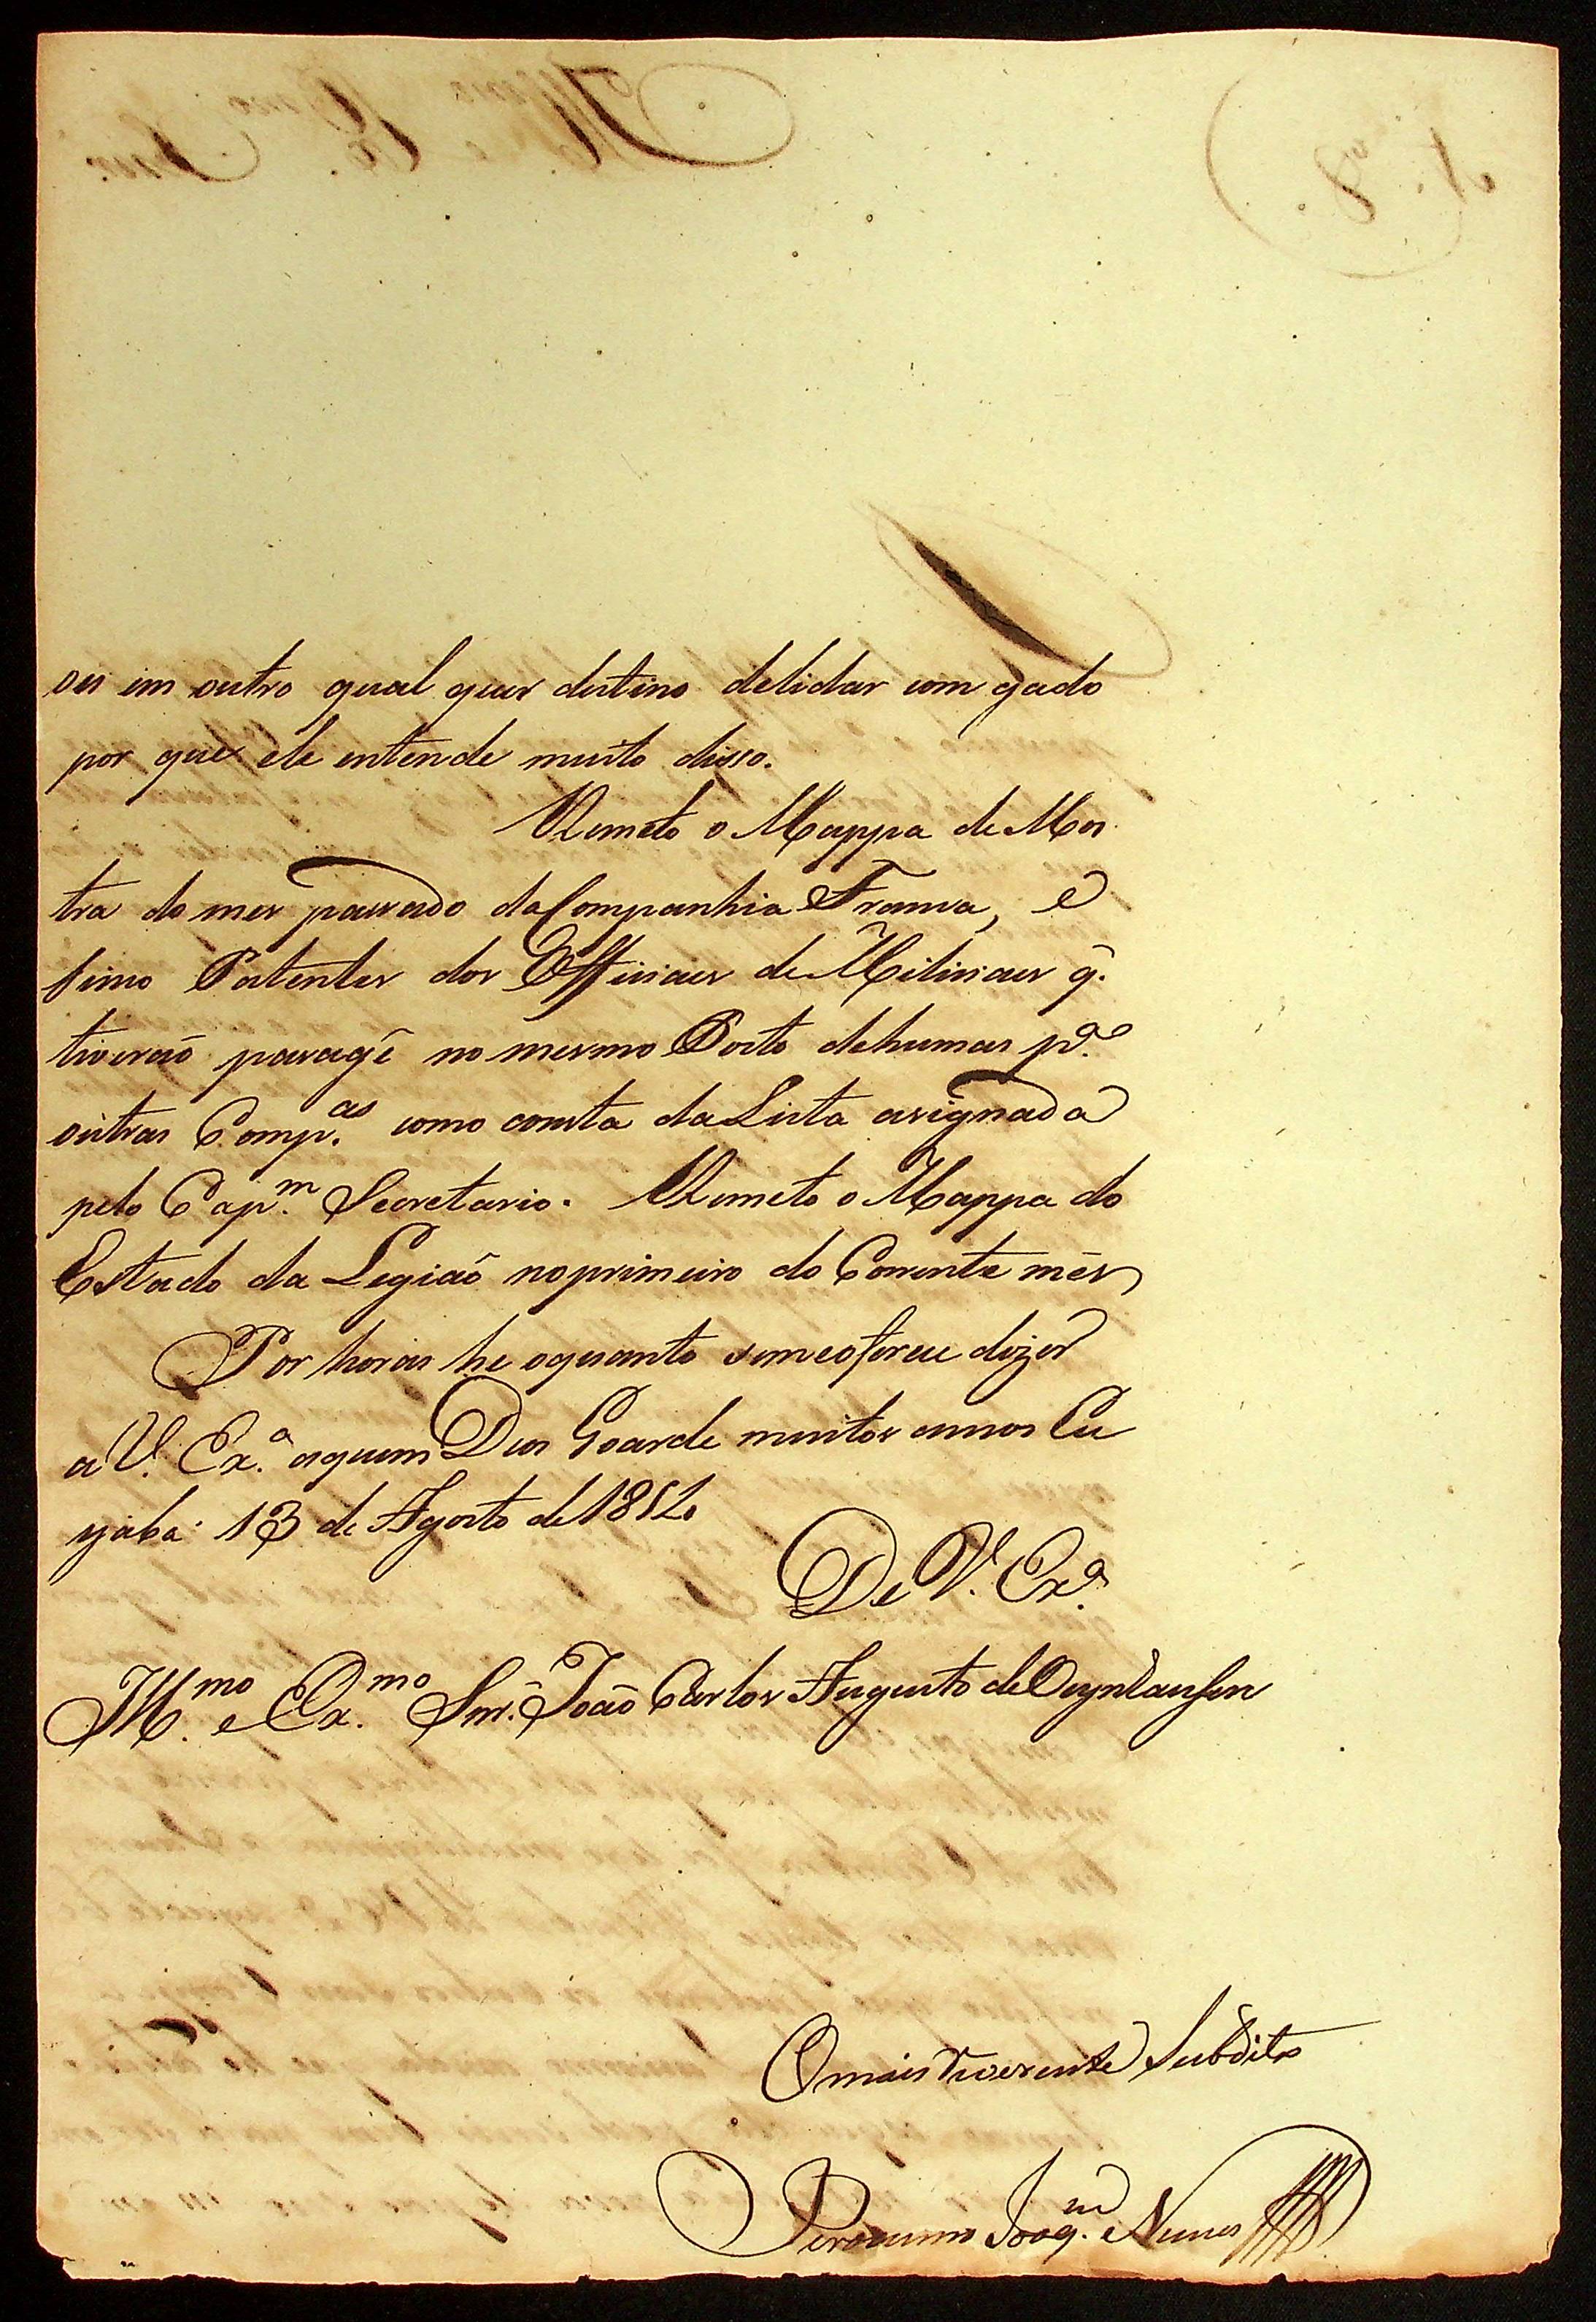 ou em outro qual quer destino delidar com gado
por que ele entende muito disso.
Remeto o Mappa de Mos
tra do mes passado da Companhia Franca, e
simo Patentes dos Officiaes de Miliciaes q.
tiverão pasagẽ no mesmo Posto dehumas p.ª
outras Comp.as como consta da Lista asignada
pelo Cap.m Secretario. Remeto o Mappa do
Estado da Legiaõ noprimeiro do Corrente mês
Por horas he oquanto semeoferece dizer
a V. Ex.ª aquem Deos Goarde muitos annos Cu
yaba 13 de Agosto de 1812.
De V. Ex.ª
Ill.mo e Ex.mo Snr. João Carlos Augusto de Oeynhausen
O mais reverente Subdito
Jeronimo Joaq.m Nunes